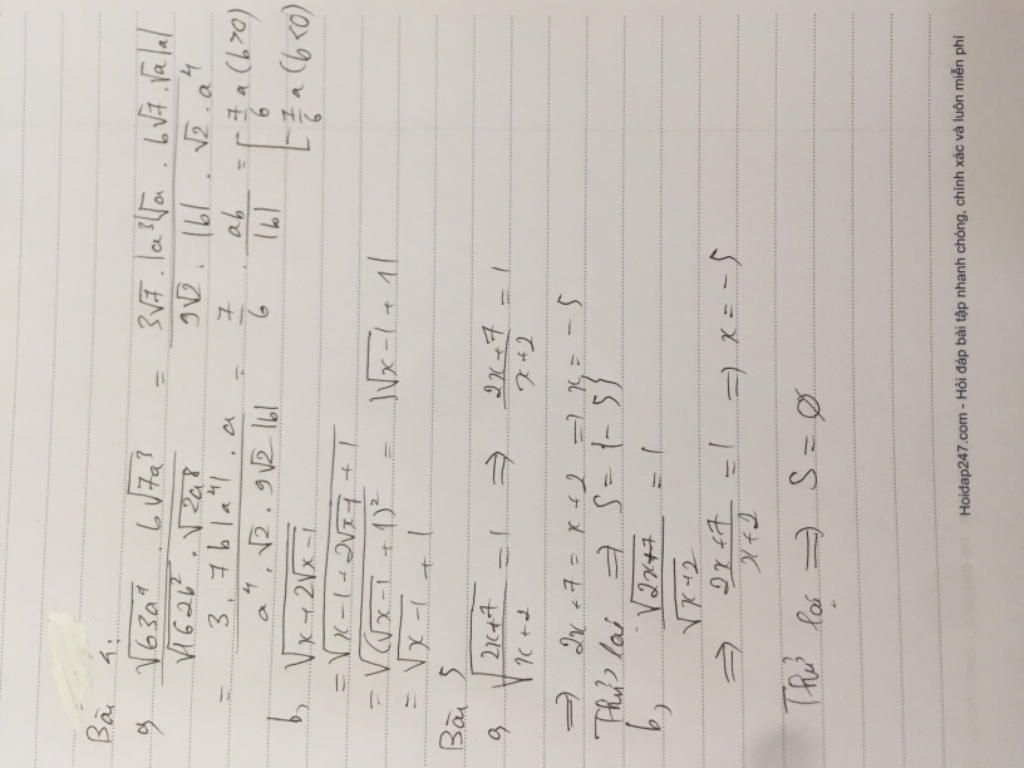 Bài 4:
a, \frac{\sqrt{63a^7} . b\sqrt{7a^3}}{\sqrt{162b^2} . \sqrt{2a^8}} = \frac{3\sqrt{7} . |a^3|\sqrt{a} . b\sqrt{7} . \sqrt{a}|a|}{9\sqrt{2} . |b| . \sqrt{2} . a^4}
= \frac{3 . 7 b |a^4| . a}{a^4 . \sqrt{2} . 9\sqrt{2} |b|} = \frac{7}{6} . \frac{ab}{|b|} = [ \frac{7}{6} a (b>0)
-\frac{7}{6} a (b<0)
b, \sqrt{x+2\sqrt{x-1}}
= \sqrt{x-1+2\sqrt{x-1}+1}
= \sqrt{(\sqrt{x-1}+1)^2} = |\sqrt{x-1}+1|
= \sqrt{x-1}+1
Bài 5
a, \sqrt{\frac{2x+7}{x+2}} = 1 => \frac{2x+7}{x+2} = 1
=> 2x+7 = x+2 => x = -5
Thử lại => S = {-5}
b, \frac{\sqrt{2x+7}}{\sqrt{x+2}} = 1
=> \frac{2x+7}{x+2} = 1 => x = -5
Thử lại => S = Ø
Hoidap247.com - Hỏi đáp bài tập nhanh chóng, chính xác và luôn miễn phí